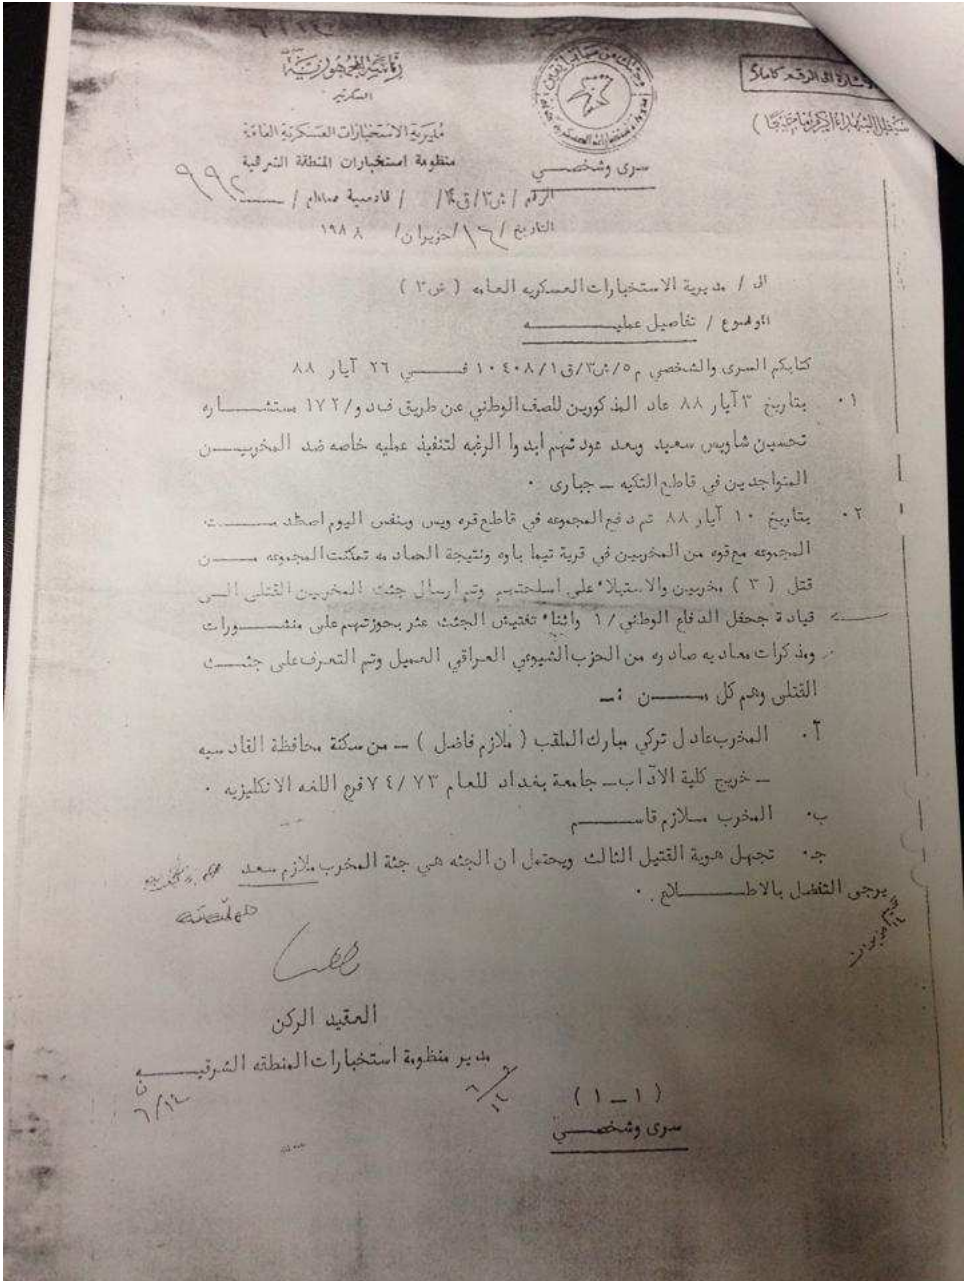 رئاسة الجمهورية
السكرتير
مديرية الاستخبارات العسكرية العامة
منظومة استخبارات المنطقة الشرقية
سرى وشخصـــي
الرقم / ش٣/ق٢/ / قادسية صدام / ٩٩٢
التاريخ / ١٦/حزيران/ ١٩٨٨
الى / مديرية الاستخبارات العسكريه العامه ( ش٣ )
الموضوع / تفاصيل عمليــــــه
كتابكم السرى والشخصي م٥/ش٣/ق١/١٠٤٠٨ فـــــي ٢٦ آيار ٨٨
١. بتاريخ ٣ آيار ٨٨ عاد المذكورين للصف الوطني عن طريق ف د و/١٧٢ مستشـــــاره
تحسين شاويس سعيد وبعد عودتهم ابدوا الرغبه لتنفيذ عمليه خاصه ضد المخربيـــن
المتواجدين في قاطع التكيه ـ جبارى .
٢. بتاريخ ١٠ آيار ٨٨ تم دفع المجموعه في قاطع قره ويس وبنفس اليوم اصطدمـــــت
المجموعه مع قوه من المخربين في قرية تيما باوه ونتيجة المصادمه تمكنت المجموعه مــــن
قتل ( ٣ ) مخربين والاستيلاء على اسلحتهم وتم ارسال جثث المخربين القتلى الــى
قيادة جحفل الدفاع الوطني/١ واثناء تفتيش الجثث عثر بحوزتهم على منشـــورات
ومذكرات معاديه صادره من الحزب الشيوعي العراقي العميل وتم التعرف على جثـــث
القتلى وهم كل مــــن :ـ
آ. المخرب عادل تركي مبارك الملقب ( ملازم فاضل ) ـ من سكنة محافظة القادسيه
ـ خريج كلية الآداب ـ جامعة بغداد للعام ٧٣/٧٤ فرع اللغه الانكليزيه .
ب. المخرب ملازم قاســـم
جـ. تجهل هوية القتيل الثالث ويحتمل ان الجثه هي جثة المخرب ملازم سعد
يرجى التفضل بالاطـــــلاع .
العقيد الركن
مدير منظومة استخبارات المنطقه الشرقيــــه
٦/١٤
٦/١٤
( ١ ـ ١ )
سرى وشخصـــي